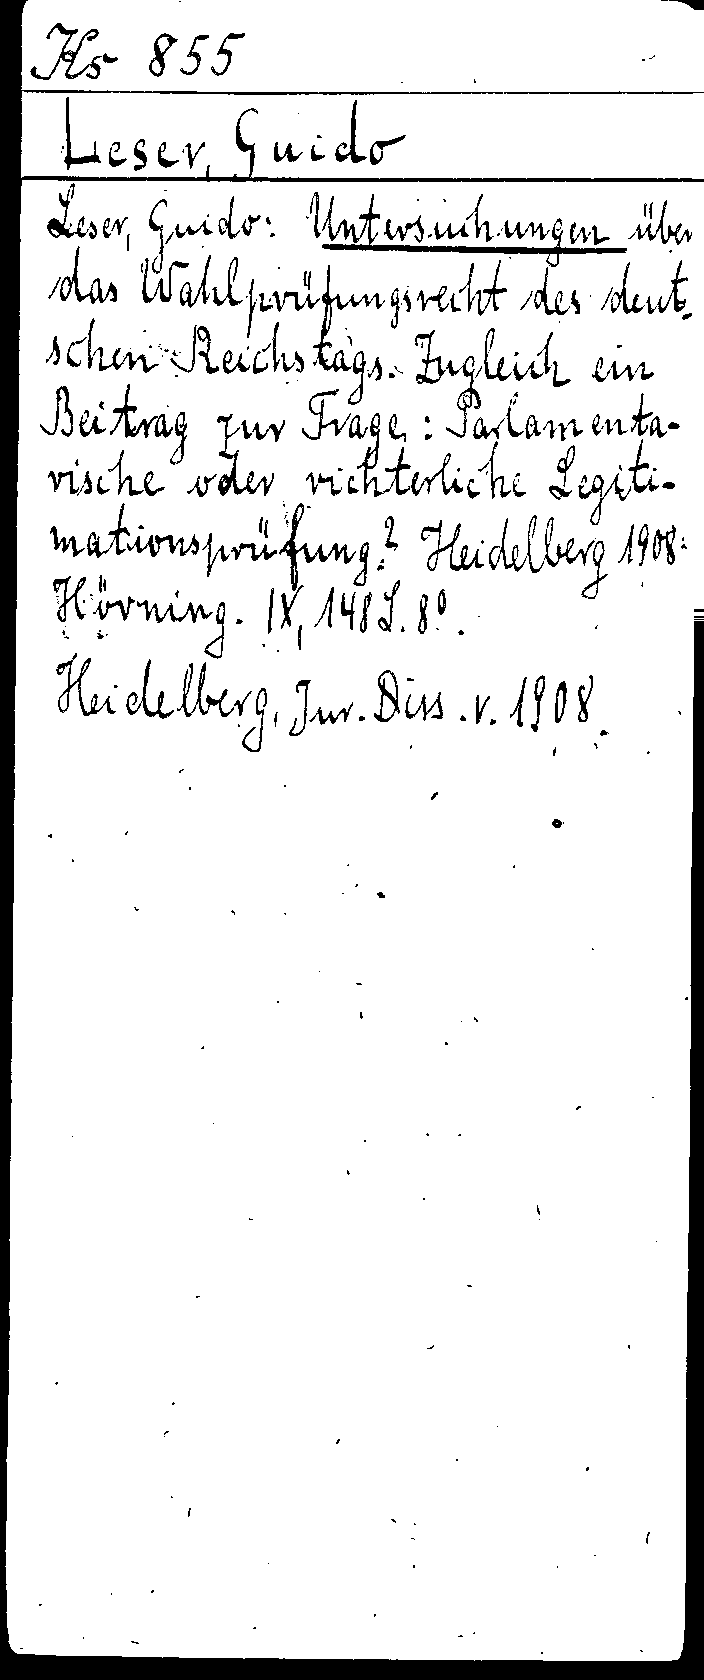 Ks 855
Leser, Guido
Leser, Guido: Untersuchungen über
das Wahlprüfungsrecht des deut-
schen Reichstags. Zugleich ein
Beitrag zur Frage: Parlamenta-
rische oder richterliche Legiti-
mationsprüfung? Heidelberg 1908:
Hörning. IX, 148 S. 8°.
Heidelberg, Jur. Diss. v. 1908.